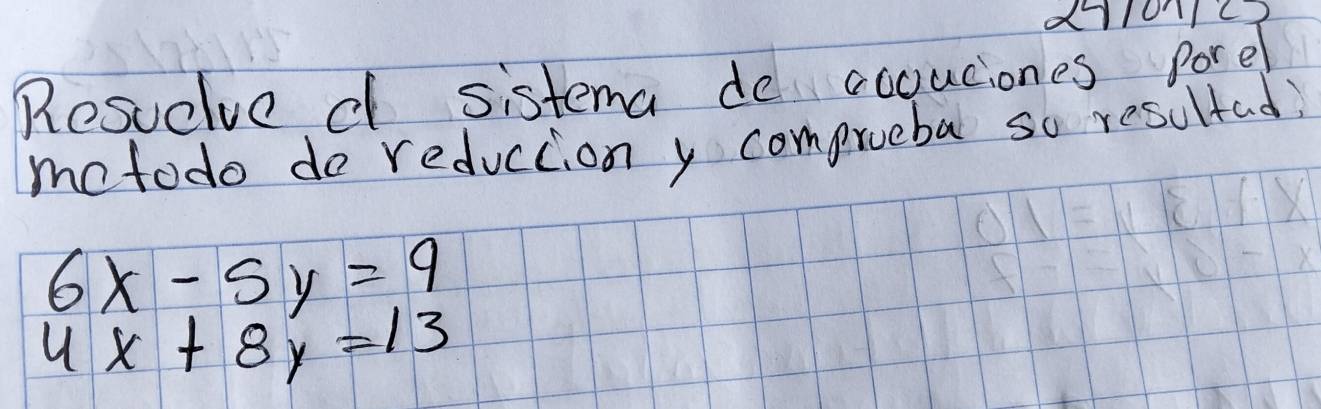 Resuelve el sistema de ecuaciones por el
metodo de reduccion y comprueba su resultad:
6x - 5y = 9
4x + 8y = 13